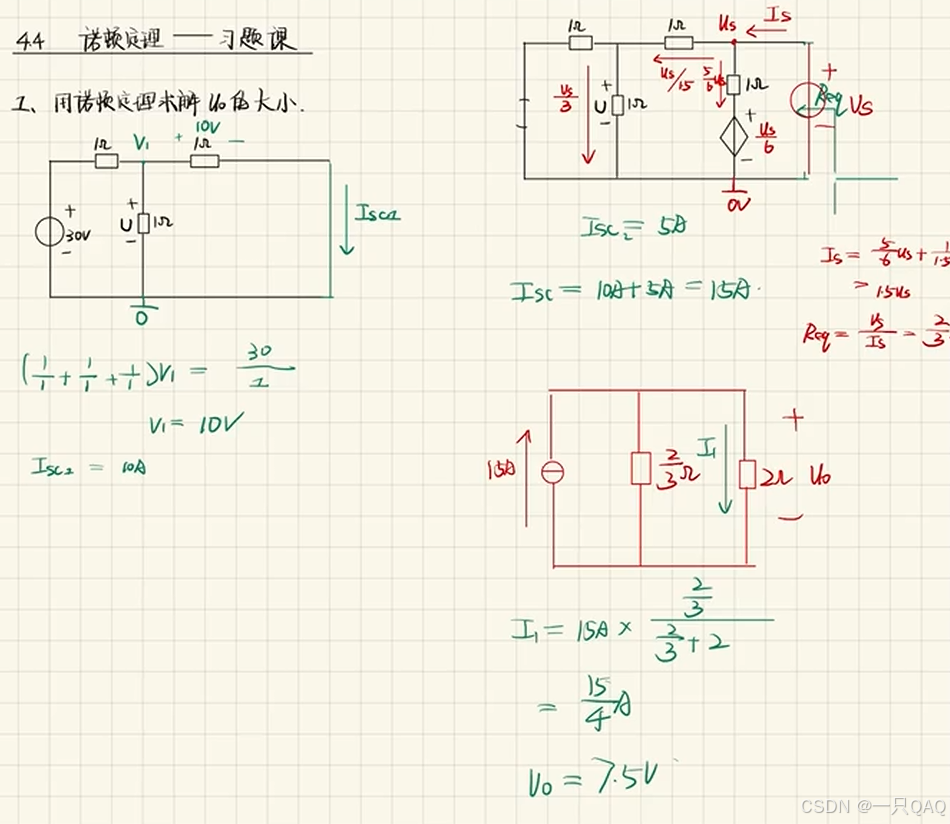 4.4 诺顿定理 — 习题课
1、用诺顿定理求解 U₀的大小.
1Ω V₁ + 10V −
1Ω
+
30V
−
+
U 1Ω
−
Isc1
0
(1/1 + 1/1 + 1/1)V₁ = 30/1
V₁ = 10V
Isc1 = 10A
1Ω 1Ω Us Is
Us/3
+
U 1Ω
−
Us/1.5 5/6 Us 1Ω
+
Us/6
−
+
Req Us
−
0V
Isc2 = 5A
Isc = 10A + 5A = 15A.
Is = 5/6 Us + 1/1.5
= 1.5Us
Req = Us/Is = 2/3
15A 2/3 Ω I₁ 2Ω
+
U₀
−
I₁ = 15A × (2/3)/(2/3 + 2)
= 15/4 A
U₀ = 7.5V
CSDN @一只QAQ